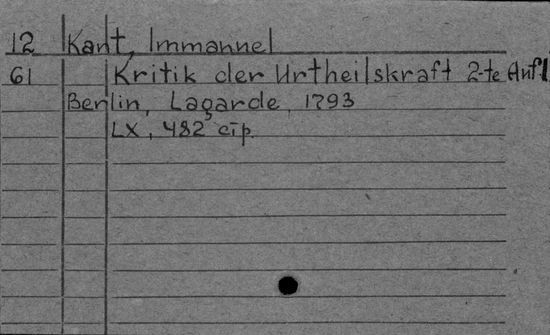 12 Kant, Immanuel
61 Kritik der Urtheilskraft 2-te Aufl
Berlin, Lagarde, 1793
LX, 482 стр.